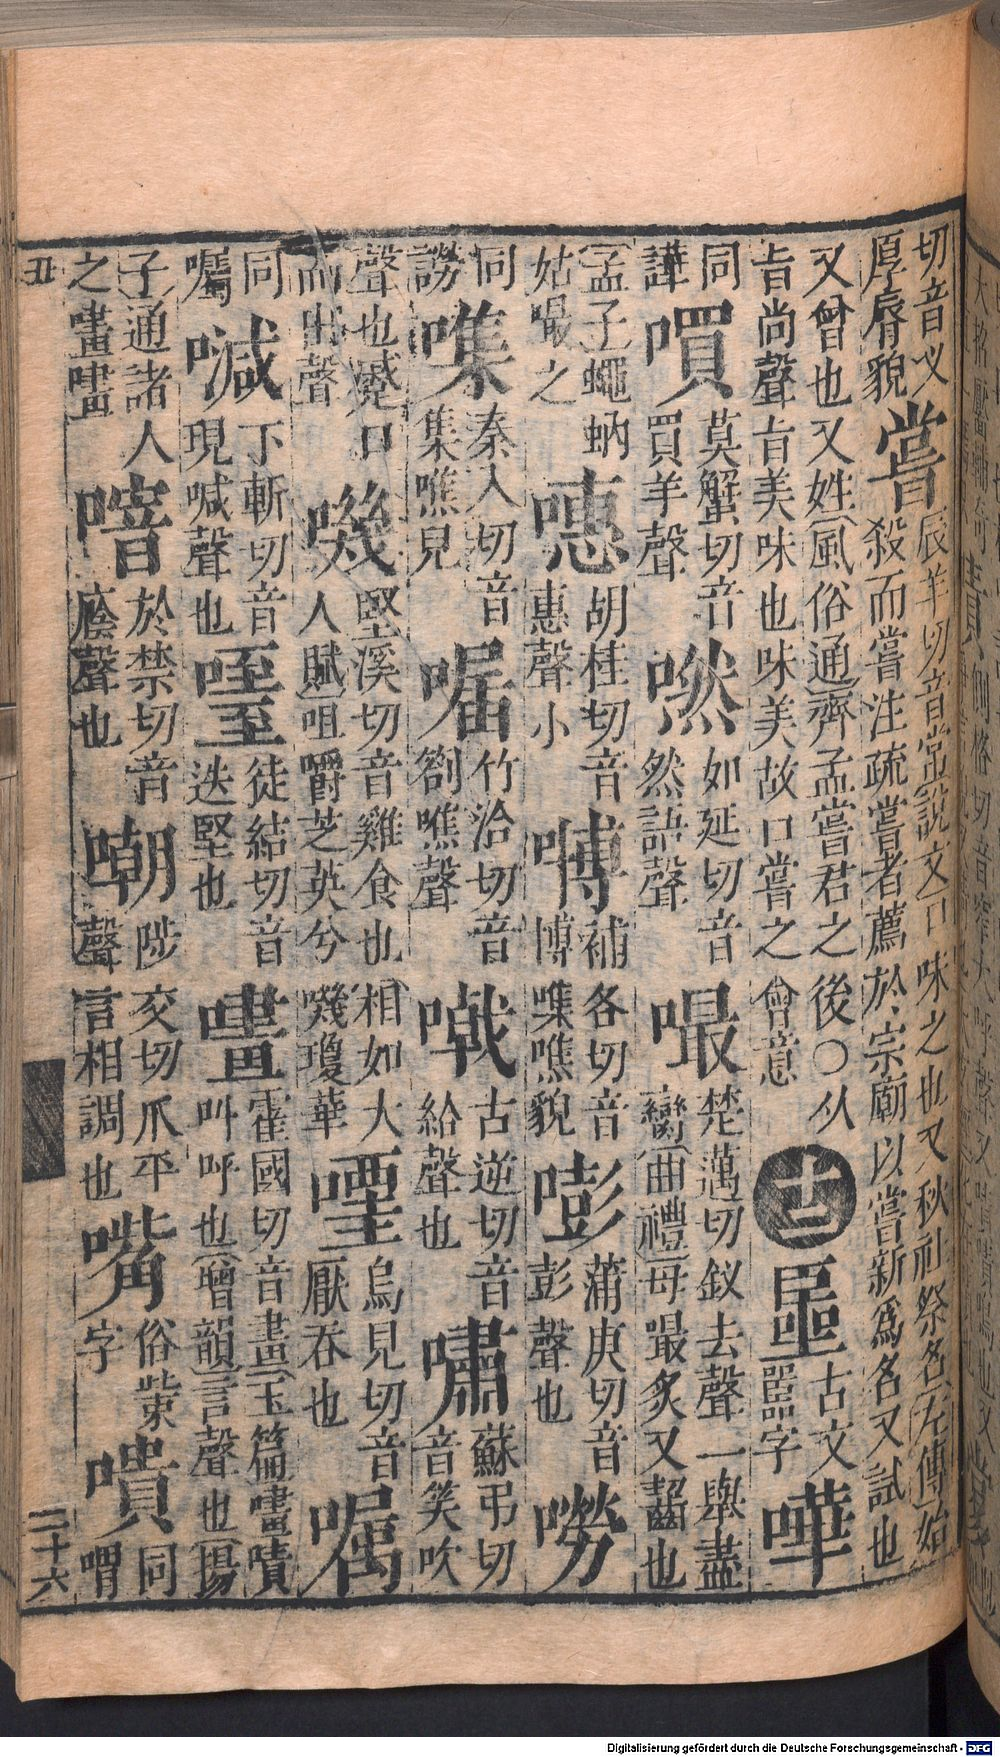 切音义
厚脣貌
嘗
辰羊切音常說文口味之也又秋祀祭名左傳始
殺而嘗注疏嘗者薦於宗廟以嘗新爲名又試也
又曾也又姓風俗通齊孟嘗君之後〇从
旨尚聲旨美味也味美故口嘗之 會意
十二
噩
古文
㗊字
嘩
同
譁
嘪
莫蟹切音
買羊聲
嘫
如延切音
然語聲
嘬
楚邁切釵去聲一舉盡
臠曲禮毋嘬炙又齧也
孟子蠅蚋
姑嘬之
嘒
胡桂切音
惠聲小
嗙
補各切音
博噍貌
嘭
蒲庚切音
彭聲也
嘮
同
謗
噍
秦入切音
集噍皃
𡀍
竹洽切音
劄噍聲
㗸
古逆切音
給聲也
嘯
蘇弔切
音笑吹
聲也蹙口
而出聲
嘰
堅溪切音雞食也相如大
人賦咀嚼芝英兮嘰瓊華
㗻
烏見切音
厭吞也
嘱
同
囑
㘎
下斬切音
現喊聲也
噎
徒結切音
迭堅也
嘩
霍國切音畫玉篇嘖嘖
叫呼也增韻言聲也揚
子通諸人
之嚍嚍
喑
於禁切音
廕聲也
嘲
陟交切爪平
聲言相調也
嘴
俗觜
字
嘳
同
喟
丑
二十六
Digitalisierung gefördert durch die Deutsche Forschungsgemeinschaft - DFG